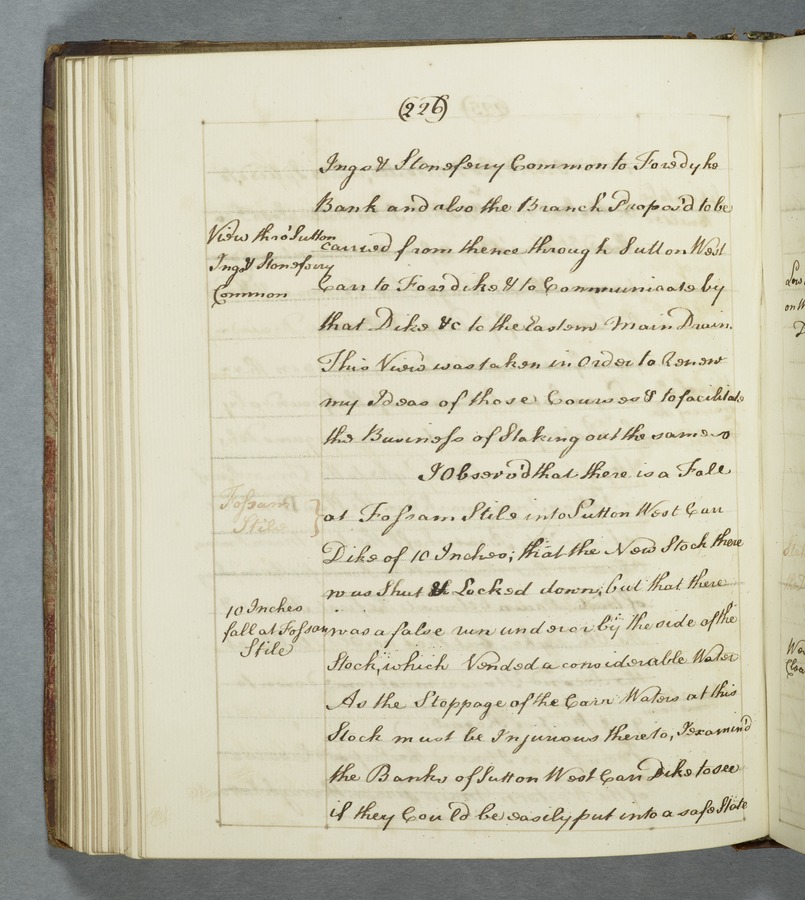 (226)
Ings & Stoneferry Common to Foredyke
Bank and also the Branch Propos'd to be
View thro' Sutton
Ings & Stoneferry
Common
carried from thence through Sutton West
Carr to Foredike & to Communicate by
that Dike &c to the Eastern Main Drain.
This View was taken in Order to Renew
my Ideas of those Courses & to facilitate
the Business of Staking out the same
I Observ'd that there is a Fall
Fossam
Stile
at Fossam Stile into Sutton West Carr
Dike of 10 Inches; that the New Stock there
was Shut & Locked down; but that there
10 Inches
fall at Fossam
Stile
was a false run under or by the side of the
Stock, which Vended a considerable Water
As the Stoppage of the Carr Waters at this
Stock must be Injurious thereto, I examin'd
the Banks of Sutton West Carr Dike to see
if they Could be easily put into a safe State